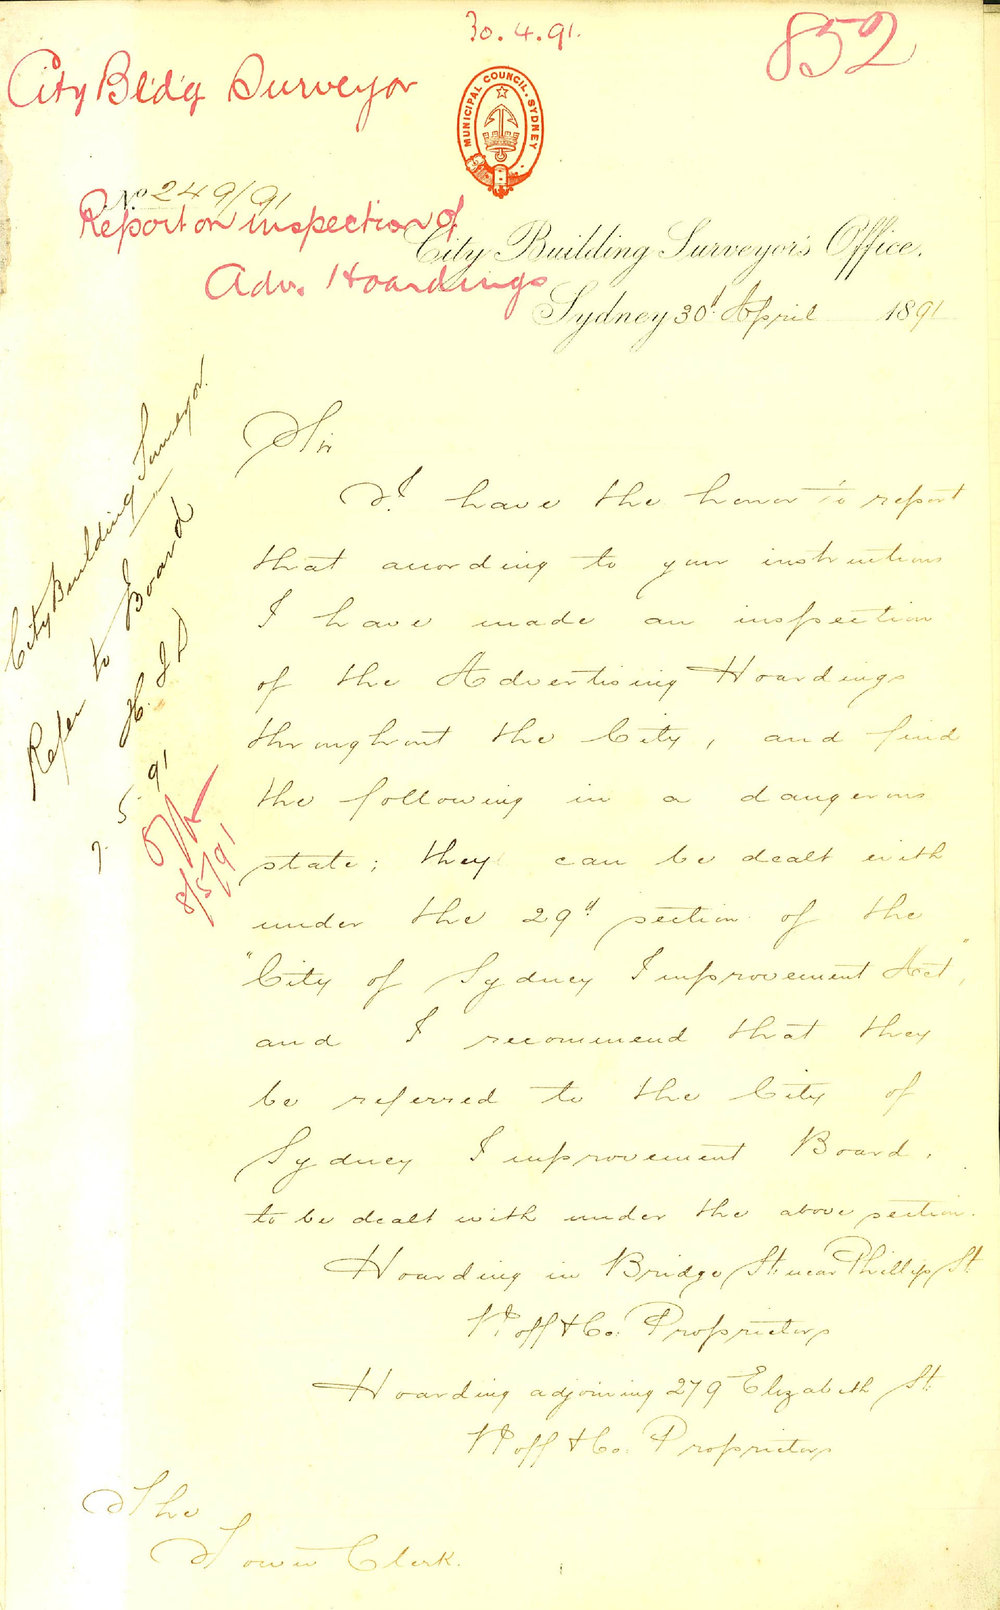 30.4.91.
852
City Bldg Surveyor
MUNICIPAL COUNCIL. SYDNEY
No 249/91
Report on inspection of
Adv. Hoardings
City Building Surveyor's Office.
Sydney 30th April 1891
City Building Surveyor.
Refer to Board
H. J. D
7. 5. 91
8/5/91
Sir
I have the honor to report
that according to your instructions
I have made an inspection
of the Advertising Hoardings
throughout the City, and find
the following in a dangerous
state; they can be dealt with
under the 29th section of the
"City of Sydney Improvement Act",
and I recommend that they
be referred to the City of
Sydney Improvement Board.
to be dealt with under the above section.
Hoarding in Bridge St. near Phillip St.
& Co. Proprietors
Hoarding adjoining 279 Elizabeth St.
& Co. Proprietors
The
Town Clerk.